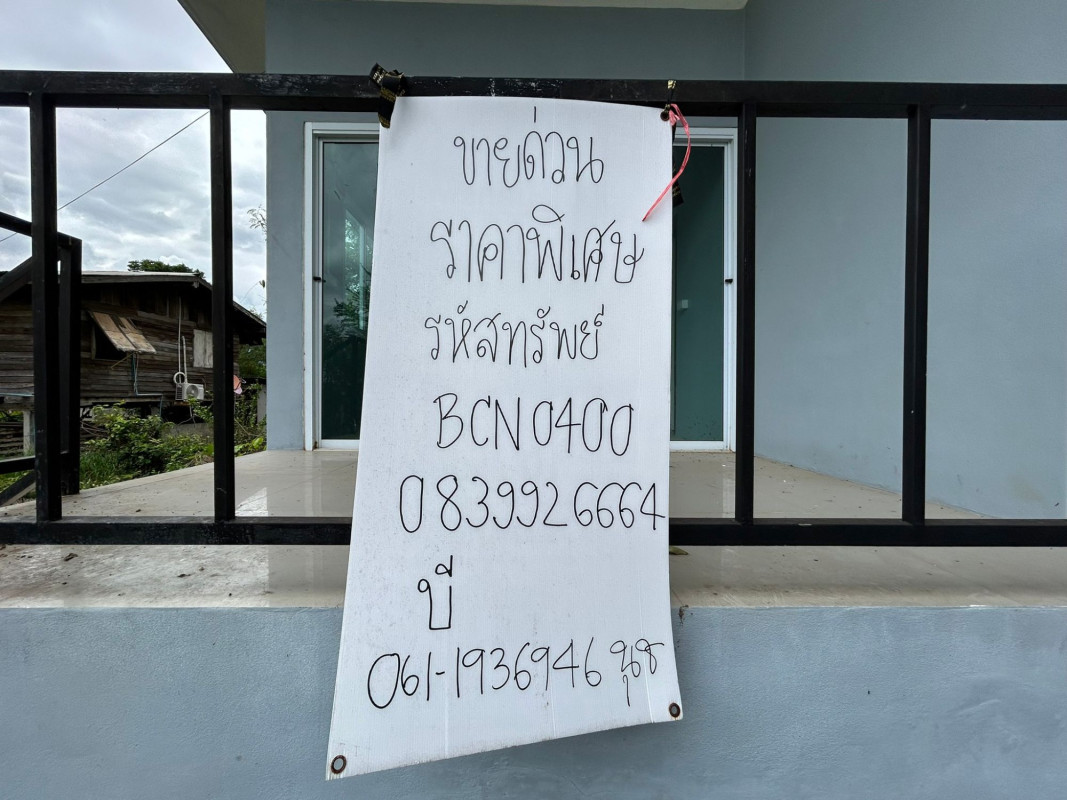 ขายด่วน
ราคาพิเศษ
รหัสทรัพย์
BCN0400
0839926664
บี
061-1936946 นุช